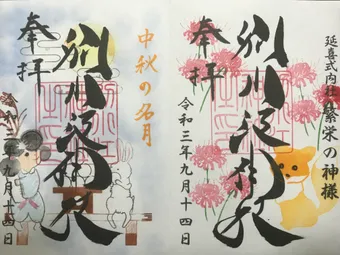 延喜式内社 繁栄の神様
別小江神社
奉拝
令和三年九月十四日
中秋の名月
別小江神社
奉拝
令和三年九月十四日